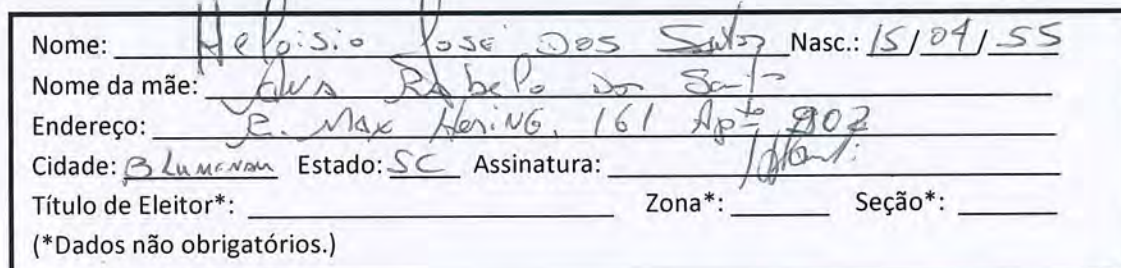 Nome: Heloisio José Dos Santos Nasc.: 15/04/55
Nome da mãe: Rabelo Dos Santos
Endereço: R. Max Hering, 161 Apto 902
Cidade: Blumenau Estado: SC Assinatura:
Título de Eleitor*: Zona*: Seção*:
(*Dados não obrigatórios.)